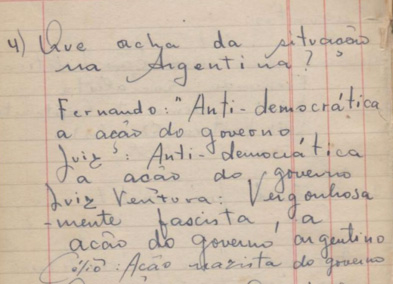 4) Que acha da situação
na Argentina?
Fernando: "Anti-democrática
a acão do governo
Luiz: Anti-democrática
a acão do governo
Luiz Ventura: Vergonhosa
-mente fascista, a
acão do governo argentino
Ação nazista do governo